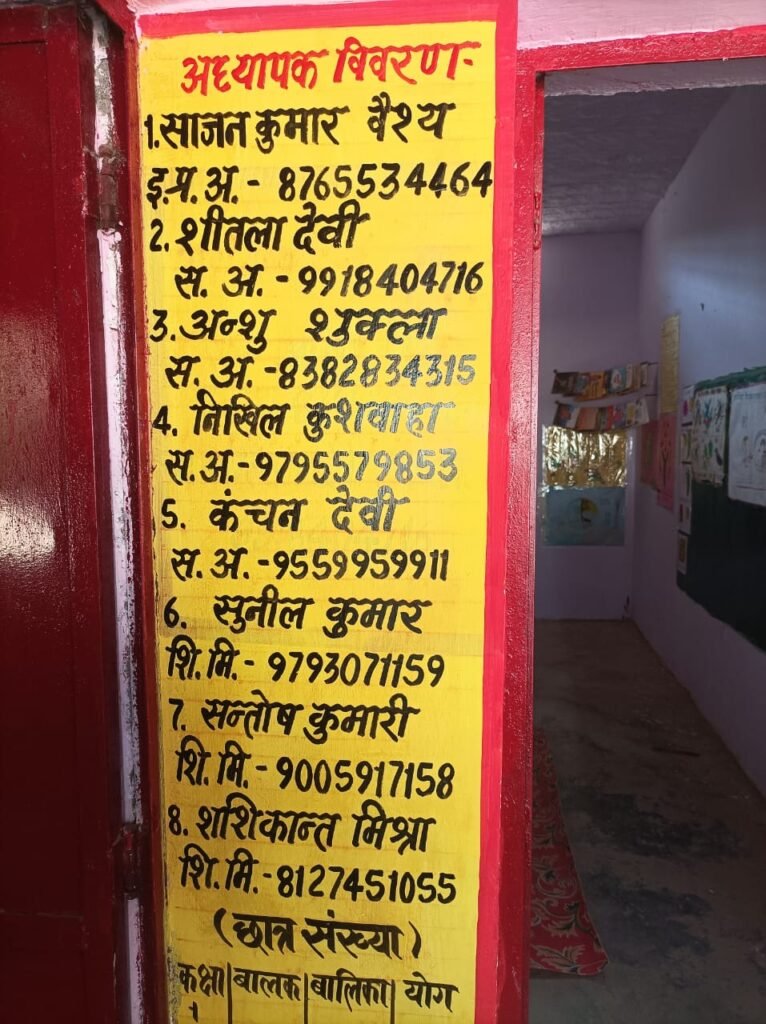 अध्यापक विवरण-
1. साजन कुमार वैश्य
इ.प्र.अ.- 8765534464
2. शीतला देवी
स. अ. - 9918404716
3. अन्शु शुक्ला
स. अ. -8382834315
4. निखिल कुशवाहा
स. अ.-9795579853
5. कंचन देवी
स. अ.-9559959911
6. सुनील कुमार
शि. मि.- 9793071159
7. सन्तोष कुमारी
शि. मि. - 9005917158
8. शशिकान्त मिश्रा
शि. मि. -8127451055
(छात्र संख्या)
कक्षा बालक बालिका योग
1